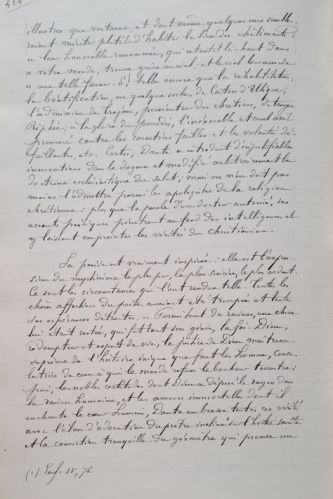 424
illustres que vertueux, et dont même quelques uns semble-
raient mériter plutôt d'habiter le lieu du châtiment;
« leur honorable renommée, qui retentit là-haut dans
« votre monde, trouve grâce au ciel, et le ciel leur accorde
« une telle faveur. (1) telle encore que la réhabilitation,
la béatification, en quelque sorte, de Caton d'Utique,
l'admission de Trajan, persécuteur des chrétiens, de
Riphée, à la gloire du paradis, l'irrévocable et
prononcé contre les caractères faibles et les volontés dé-
faillantes, etc. Certes, Dante a introduit d'injustifiables
innovations dans le dogme et modifié arbitrairement la
doctrine ecclésiastique du salut; mais on n'en doit pas
moins l'admettre parmi les apologistes de la religion
chrétienne: plus que la parole d'un docteur autorisé, ses
accents poétiques pénètrent au fond des intelligences et
y laissent empreintes les vérités du Christianisme.
Sa poésie est vraiment inspirée: elle est l'expres-
sion du mysticisme le plus pur, le plus sincère, le plus ardent.
Ce sont les circonstances qui l'ont rendue telle. Toutes les
chères affections du poète avaient été trompées et toutes
ses espérances détruites. « Parmi tant de ruines, une chose
lui était restée, qui fit tout son génie, la foi. Dieu,
rédempteur et esprit de vie, la justice de Dieu maîtresse
suprême de l'histoire inique que font les hommes, conso-
latrice de ceux à qui le monde refuse le bonheur terrestre;
puis, les nobles certitudes dont Dieu a déposé le rayon dans
la raison humaine, et les amours immortelles dont il
enchante le cœur humain, Dante embrassa toutes ces vérités
avec l'élan d'adoration du prêtre incliné sur l'hostie sainte
et la conviction tranquille du géomètre qui pense un
(1) Enf. IV, 76